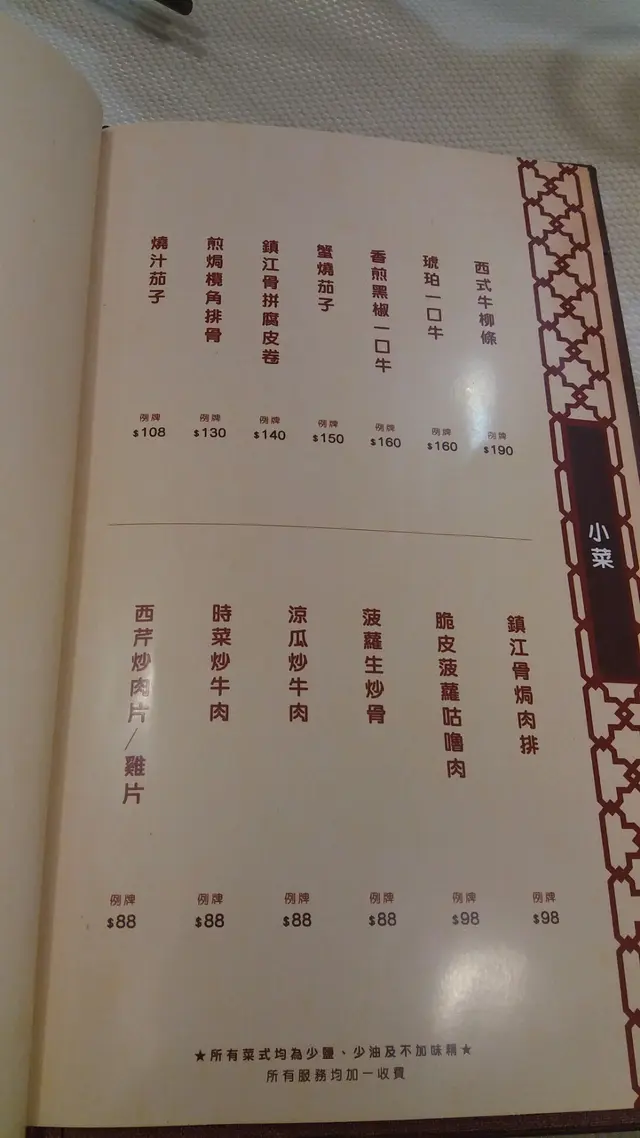 小菜
西式牛柳條
例牌
$190
琥珀一口牛
例牌
$160
香煎黑椒一口牛
例牌
$160
蟹燒茄子
例牌
$150
鎮江骨拼腐皮卷
例牌
$140
煎焗欖角排骨
例牌
$130
燒汁茄子
例牌
$108
鎮江骨焗肉排
例牌
$98
脆皮菠蘿咕嚕肉
例牌
$98
菠蘿生炒骨
例牌
$88
涼瓜炒牛肉
例牌
$88
時菜炒牛肉
例牌
$88
西芹炒肉片/雞片
例牌
$88
★所有菜式均為少鹽、少油及不加味精★
所有服務均加一收費